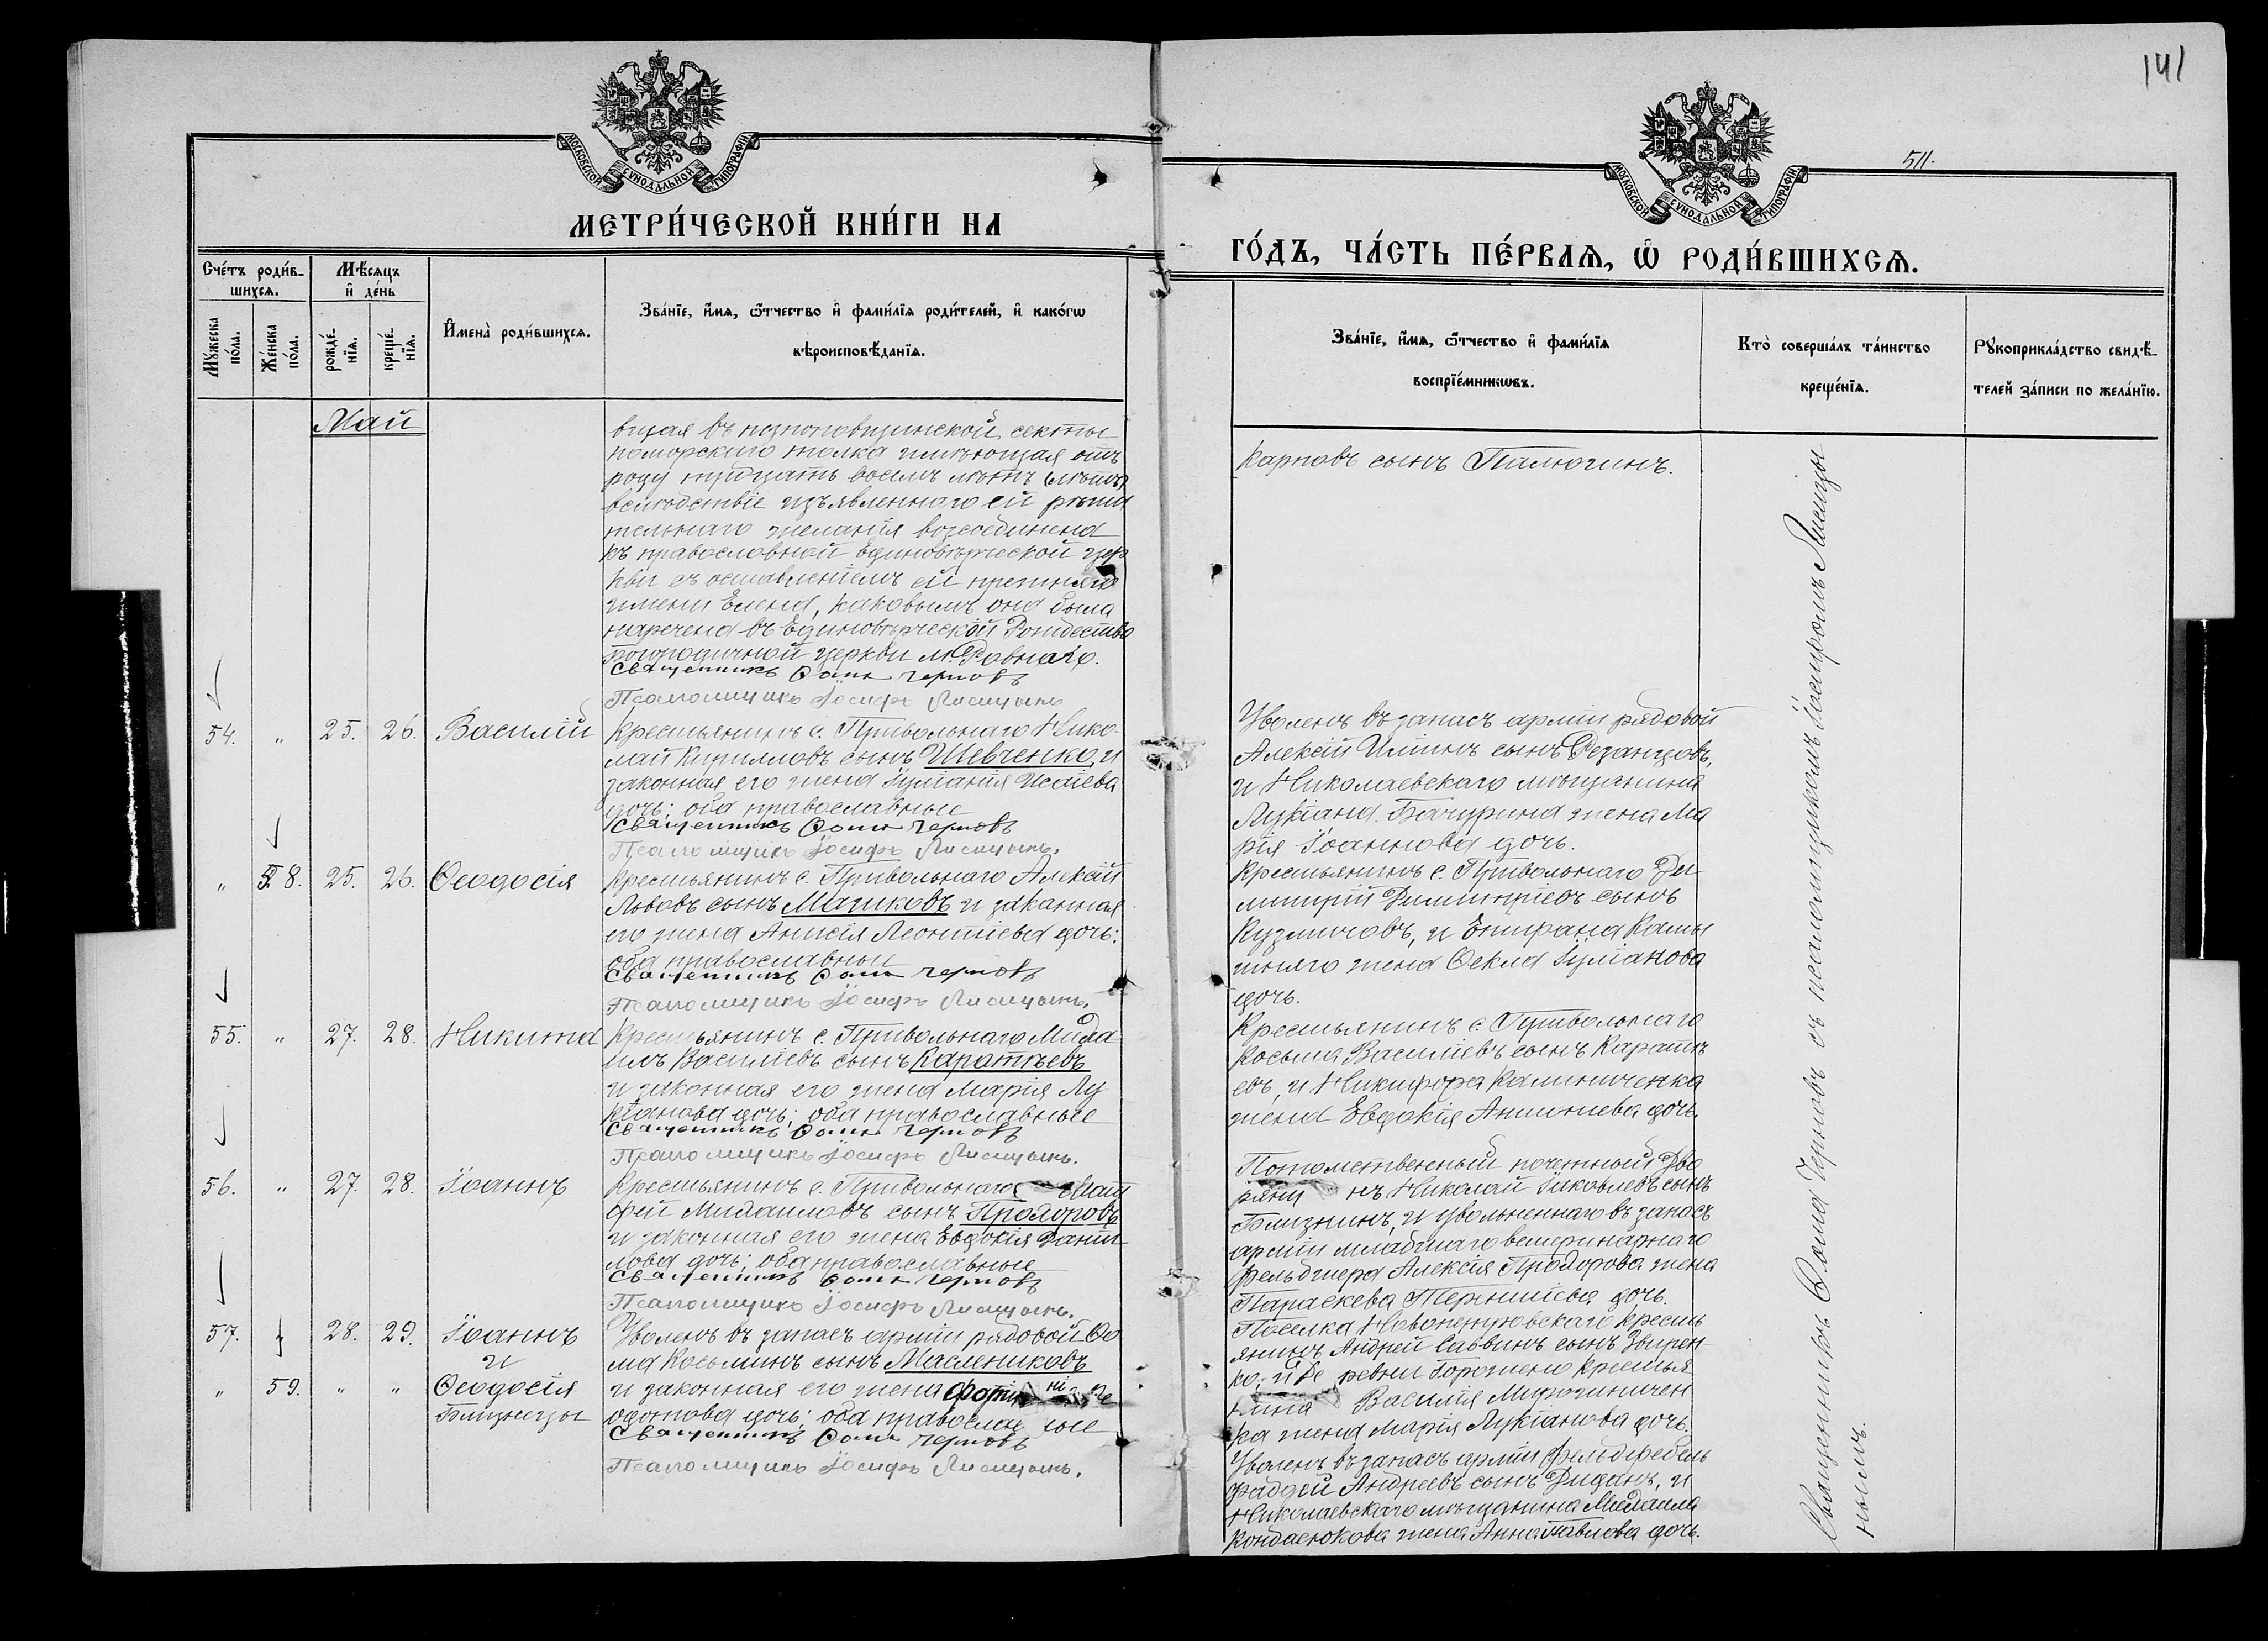 141
511.
МОСКОВСКОЙ СѴНОДАЛЬНОЙ ТИПОГРАФІИ
МОСКОВСКОЙ СѴНОДАЛЬНОЙ ТИПОГРАФІИ
МЕТРИ́ЧЕСКОЙ КНИ́ГИ НА
ГО́ДЪ, ЧА́СТЬ ПЕ́РВАЯ, Ѡ РОДИ́ВШИХСЯ.
Сче́тъ роди́в-
шихся.
Мѣ́сяцъ
и де́нь
Му́жеска по́ла.
Же́нска по́ла.
рожде́-
нїя.
креще́-
нїя.
Имена̀ роди́вшихся.
Зва́нїе, и́мя, ѻ́тчество и фами́лїя роди́телей, и како́гѡ
вѣроисповѣ́данїя.
Зва́нїе, и́мя, ѻ́тчество и фами́лїя
воспрїе́мникѡвъ.
Кто̀ соверша́лъ та́инство
креще́нїя.
Рукоприкла́дство свидѣ́-
телей за́писи по жела́нїю.
Май
въ секты
поморскаго толка имѣющая отъ
роду тридцать восемь лѣтъ (лѣтъ)
вслѣдствіе изъявленнаго ей рѣши
тельнаго желанія возсоединена
къ православной Единовѣрческой цер
кви съ оставленіемъ ей прежняго
имени Елена, каковымъ она была
наречена въ Единовѣрческой Рождество
богородичной церкви м. Ровнаго.
Священникъ Ѳома Черновъ
Псаломщикъ Іосифъ Лисицынъ
Карповъ сынъ Пилюгинъ.
54. " 25. 26. Василій
Крестьянинъ с. Привольнаго Нико-
лай Кирилловъ сынъ Шевченко, и
законная его жена Іуліанія Исаіева
дочь; оба православные
Священникъ Ѳома Черновъ
Псаломщикъ Іосифъ Лисицынъ.
Уволенъ въ запасъ арміи рядовой
Алексій Ильинъ сынъ Рязанцовъ,
и Николаевскаго мѣщанина
Лукіана Бачурина жена Ма
рія Іоаннова дочь.
" 58. 25. 26. Ѳеодосія
Крестьянинъ с. Привольнаго Алексій
Львовъ сынъ Машковъ и законная
его жена Анисія Леонтіева дочь;
оба православные
Священникъ Ѳома Черновъ
Псаломщикъ Іосифъ Лисицынъ.
Крестьянинъ с. Привольнаго Ди
митрій Димитріевъ сынъ
Кузмичовъ, и
жена Ѳекла Іуліанова
дочь.
55. " 27. 28. Никита
Крестьянинъ с. Привольнаго Миха
илъ Василіевъ сынъ Каратѣевъ
и законная его жена Марія Лу
кіанова дочь; оба православные
Священникъ Ѳома Черновъ
Псаломщикъ Іосифъ Лисицынъ.
Крестьянинъ с. Привольнаго
Косьма Василіевъ сынъ Каратѣ
евъ, и Никифора Калиниченка
жена Евдокія Антоніева дочь.
56. " 27. 28. Іоаннъ
Крестьянинъ с. Привольнаго Мат
фей Михаиловъ сынъ Прохоровъ
и законная его жена Евдокія Даніи
лова дочь; оба православные
Священникъ Ѳома Черновъ
Псаломщикъ Іосифъ Лисицынъ.
Потомственный почетный Дво
рянинъ Николай Іаковлевъ сынъ
Близнинъ, и увольненнаго въ запасъ
арміи младшаго ветеринарнаго
фельдшера Алексія Прохорова жена
Параскева Терентіева дочь.
57. 28. 29. Іоаннъ
и
" 59. " " Ѳеодосія
Близнецы
Уволенъ въ запасъ арміи рядовой Ѳо
ма Косьминъ сынъ Маслениковъ
и законная его жена
дочь; оба православные
Священникъ Ѳома Черновъ
Псаломщикъ Іосифъ Лисицынъ.
Поселка Новопетровскаго крестья
янинъ Андрей Саввинъ сынъ Звирен
ко, и деревни Горожено крестья
нина Василія Мирошничен
ка жена Марія Лукіанова дочь.
Уволенъ въ запасъ арміи фельдфебель
Фаддей Андреевъ сынъ Диданъ, и
Николаевскаго мѣщанина Михаила
Кондаснокова жена Анна Павлова дочь.
Священникъ Ѳома Черновъ съ псаломщикомъ Іосифомъ Лисицы
нымъ.